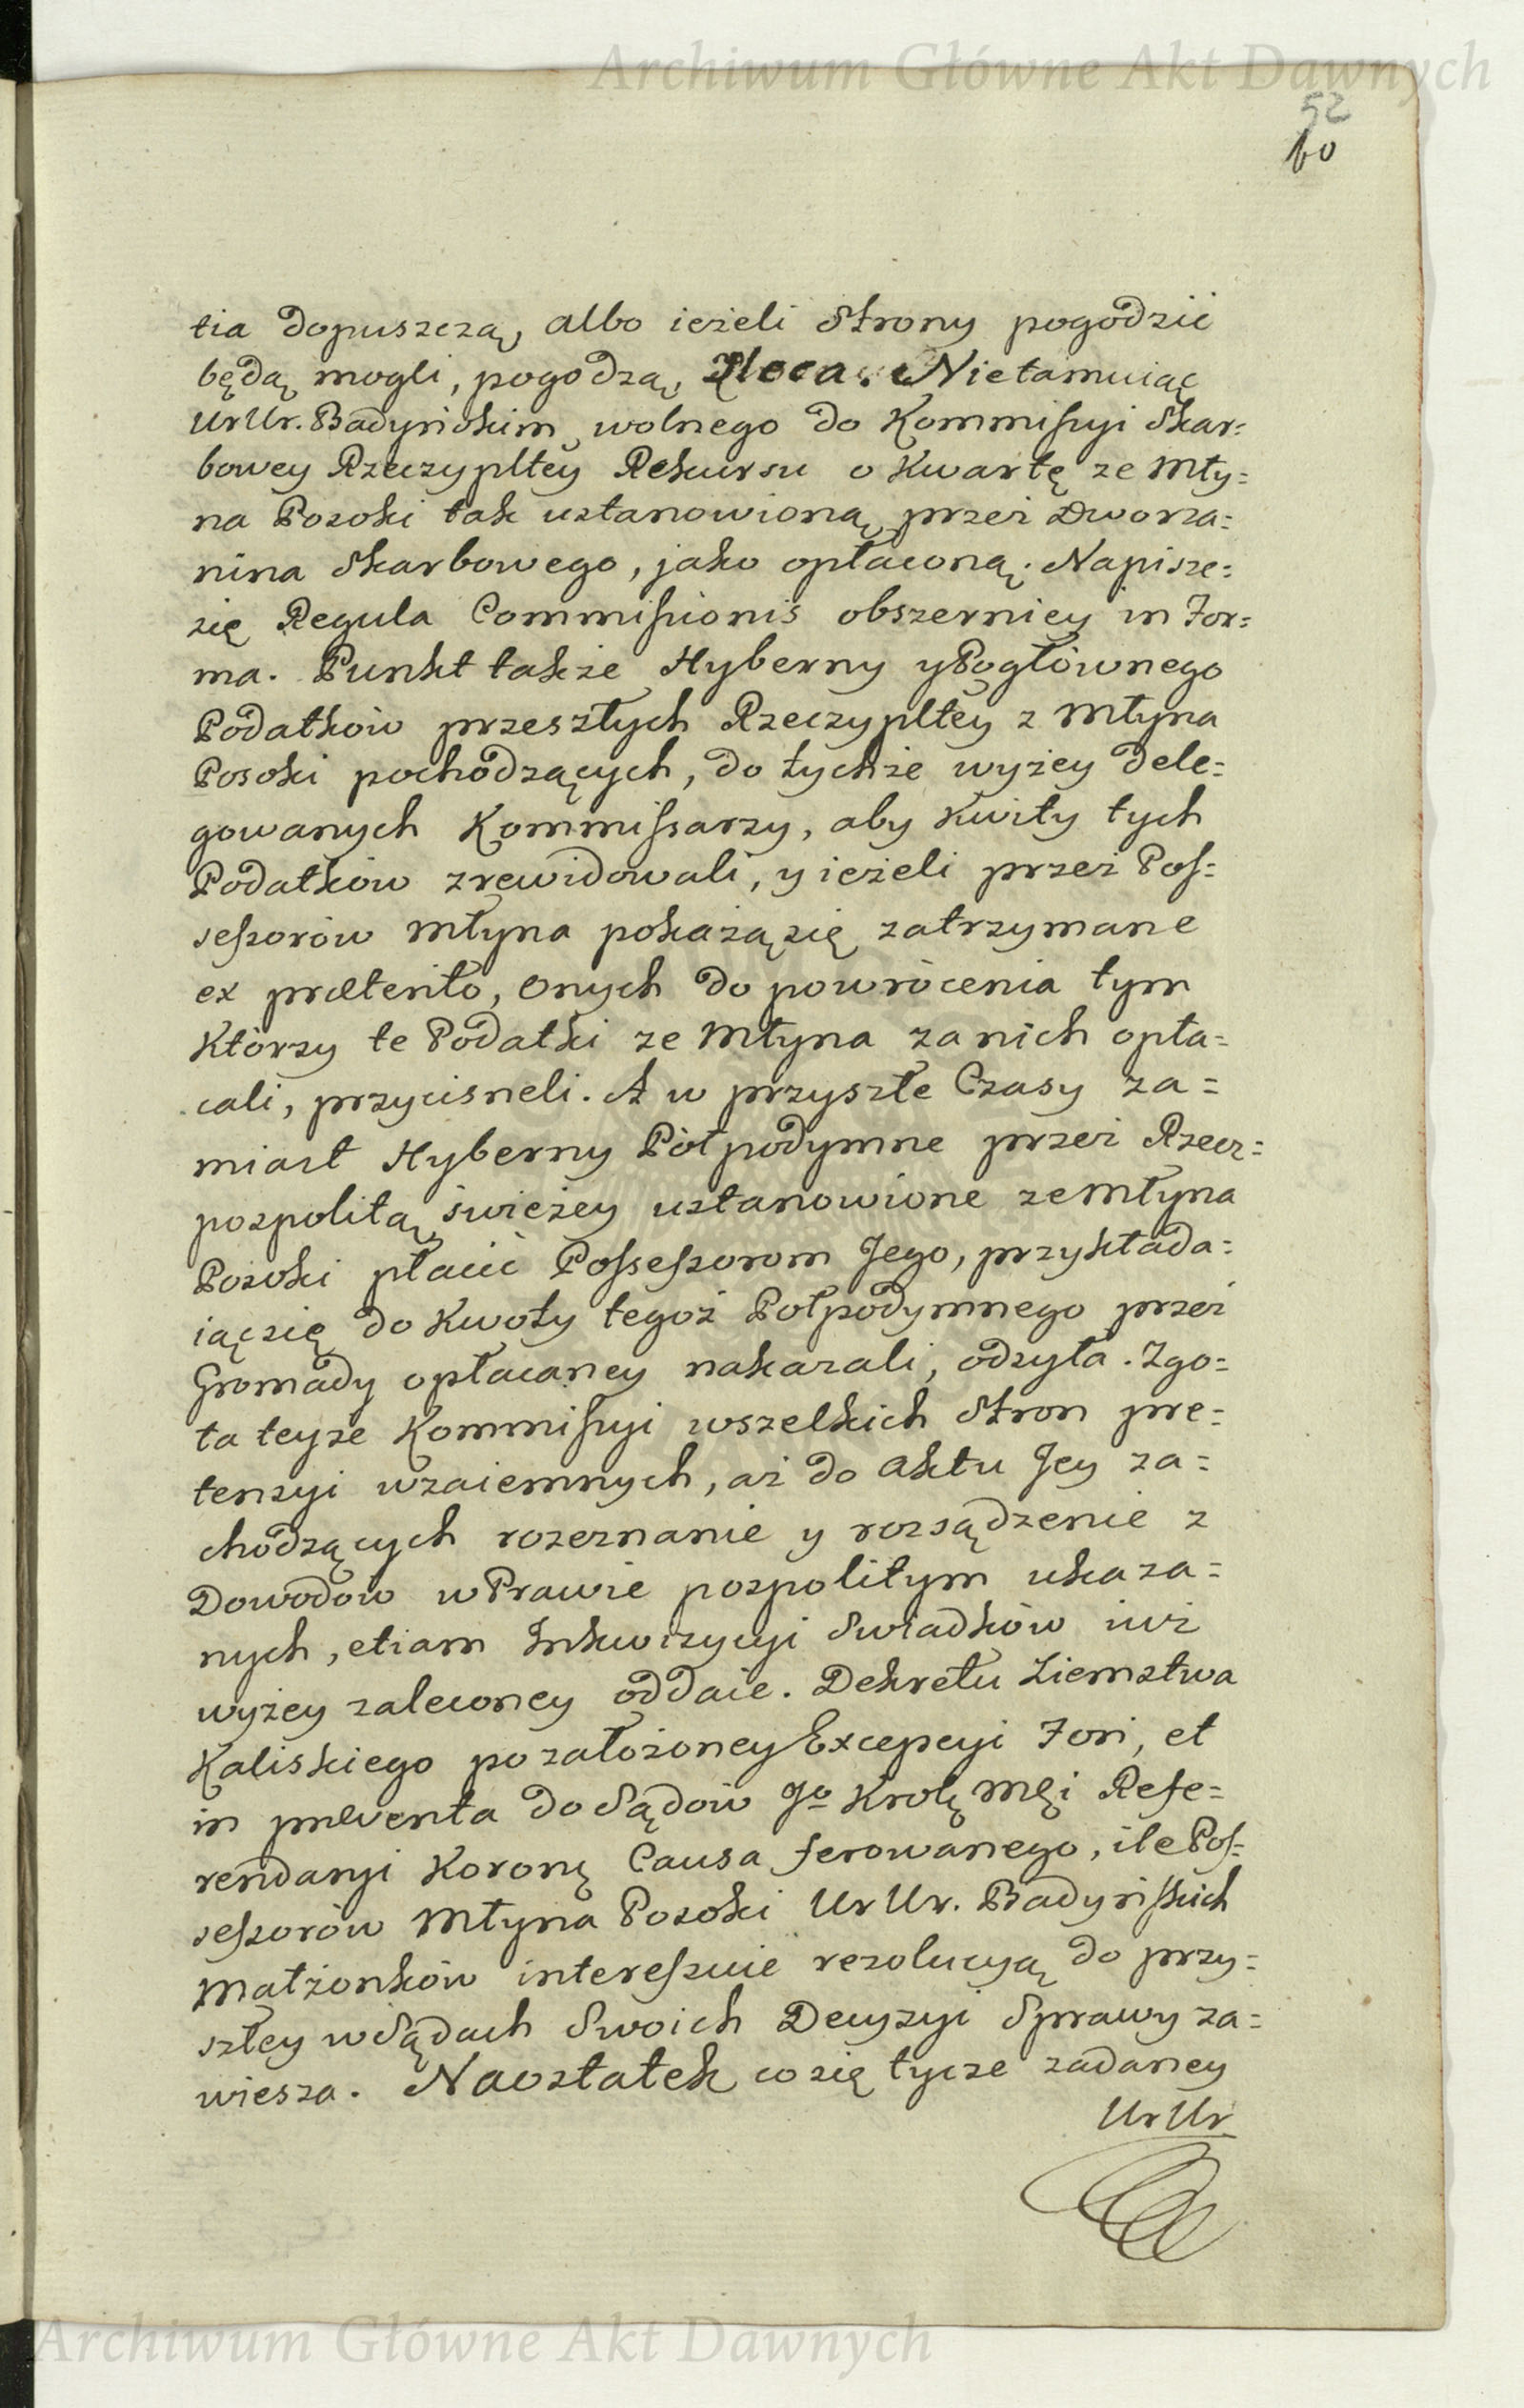 Archiwum Główne Akt Dawnych
52
60
tia dopuszczą, albo ieżeli Strony pogodzić
będą mogli, pogodzą, Zleca. Nietamuiąc
UrUr. Badyńskim wolnego do Kommissyi Skar=
bowey Rzeczypltey Rekursu o Kwartę ze Mły=
na Posoki tak ustanowioną przez Dworza=
nina Skarbowego, jako opłaconą. Napisze=
się Regula Commissionis obszerniey in For=
ma. Punkt także Hyberny y Pogłównego
Podatków przeszłych Rzeczypltey z Młyna
Posoki pochodzących, do tychże wyżey dele=
gowanych Kommissarzy, aby Kwity tych
Podatków zrewidowali, y ieżeli przez Pos=
sessorów Młyna pokażą się zatrzymane
ex præterito, onych do powrócenia tym
Którzy te Podatki ze Młyna za nich opła=
cali, przycisneli. A w przyszłe Czasy za=
miast Hyberny Półpodymne przez Rzecz=
pospolitą świeżey ustanowione ze Młyna
Posoki płacić Possessorom Jego, przykłada=
iąc się do Kwoty tegoż Połpodymnego przez
Gromady opłacaney nakazali, odsyła. Zgo=
ła teyże Kommissyi wszelkich Stron pre=
tensyi wzaiemnych, aż do Aktu Jey za=
chodzących rozeznanie y rozsądzenie z
Dowodów w Prawie pospolitym ukaza=
nych, etiam Inkwizycyi Swiadków iuż
wyżey zaleconey oddaie. Dekretu Ziemstwa
Kaliskiego po założoney Excepcyi Fori, et
in præventa do Sądów Jo Krolę Męi Refe=
rendaryi Koronę Causa ferowanego, ile Pos=
sessorów Młyna Posoki UrUr. Badyńskich
Małżonków interessuie rezolucyą do przy=
szłey w Sądach Swoich Decyzyi Sprawy za=
wiesza. Naostatek co się tycze zadaney
UrUr.
Archiwum Główne Akt Dawnych